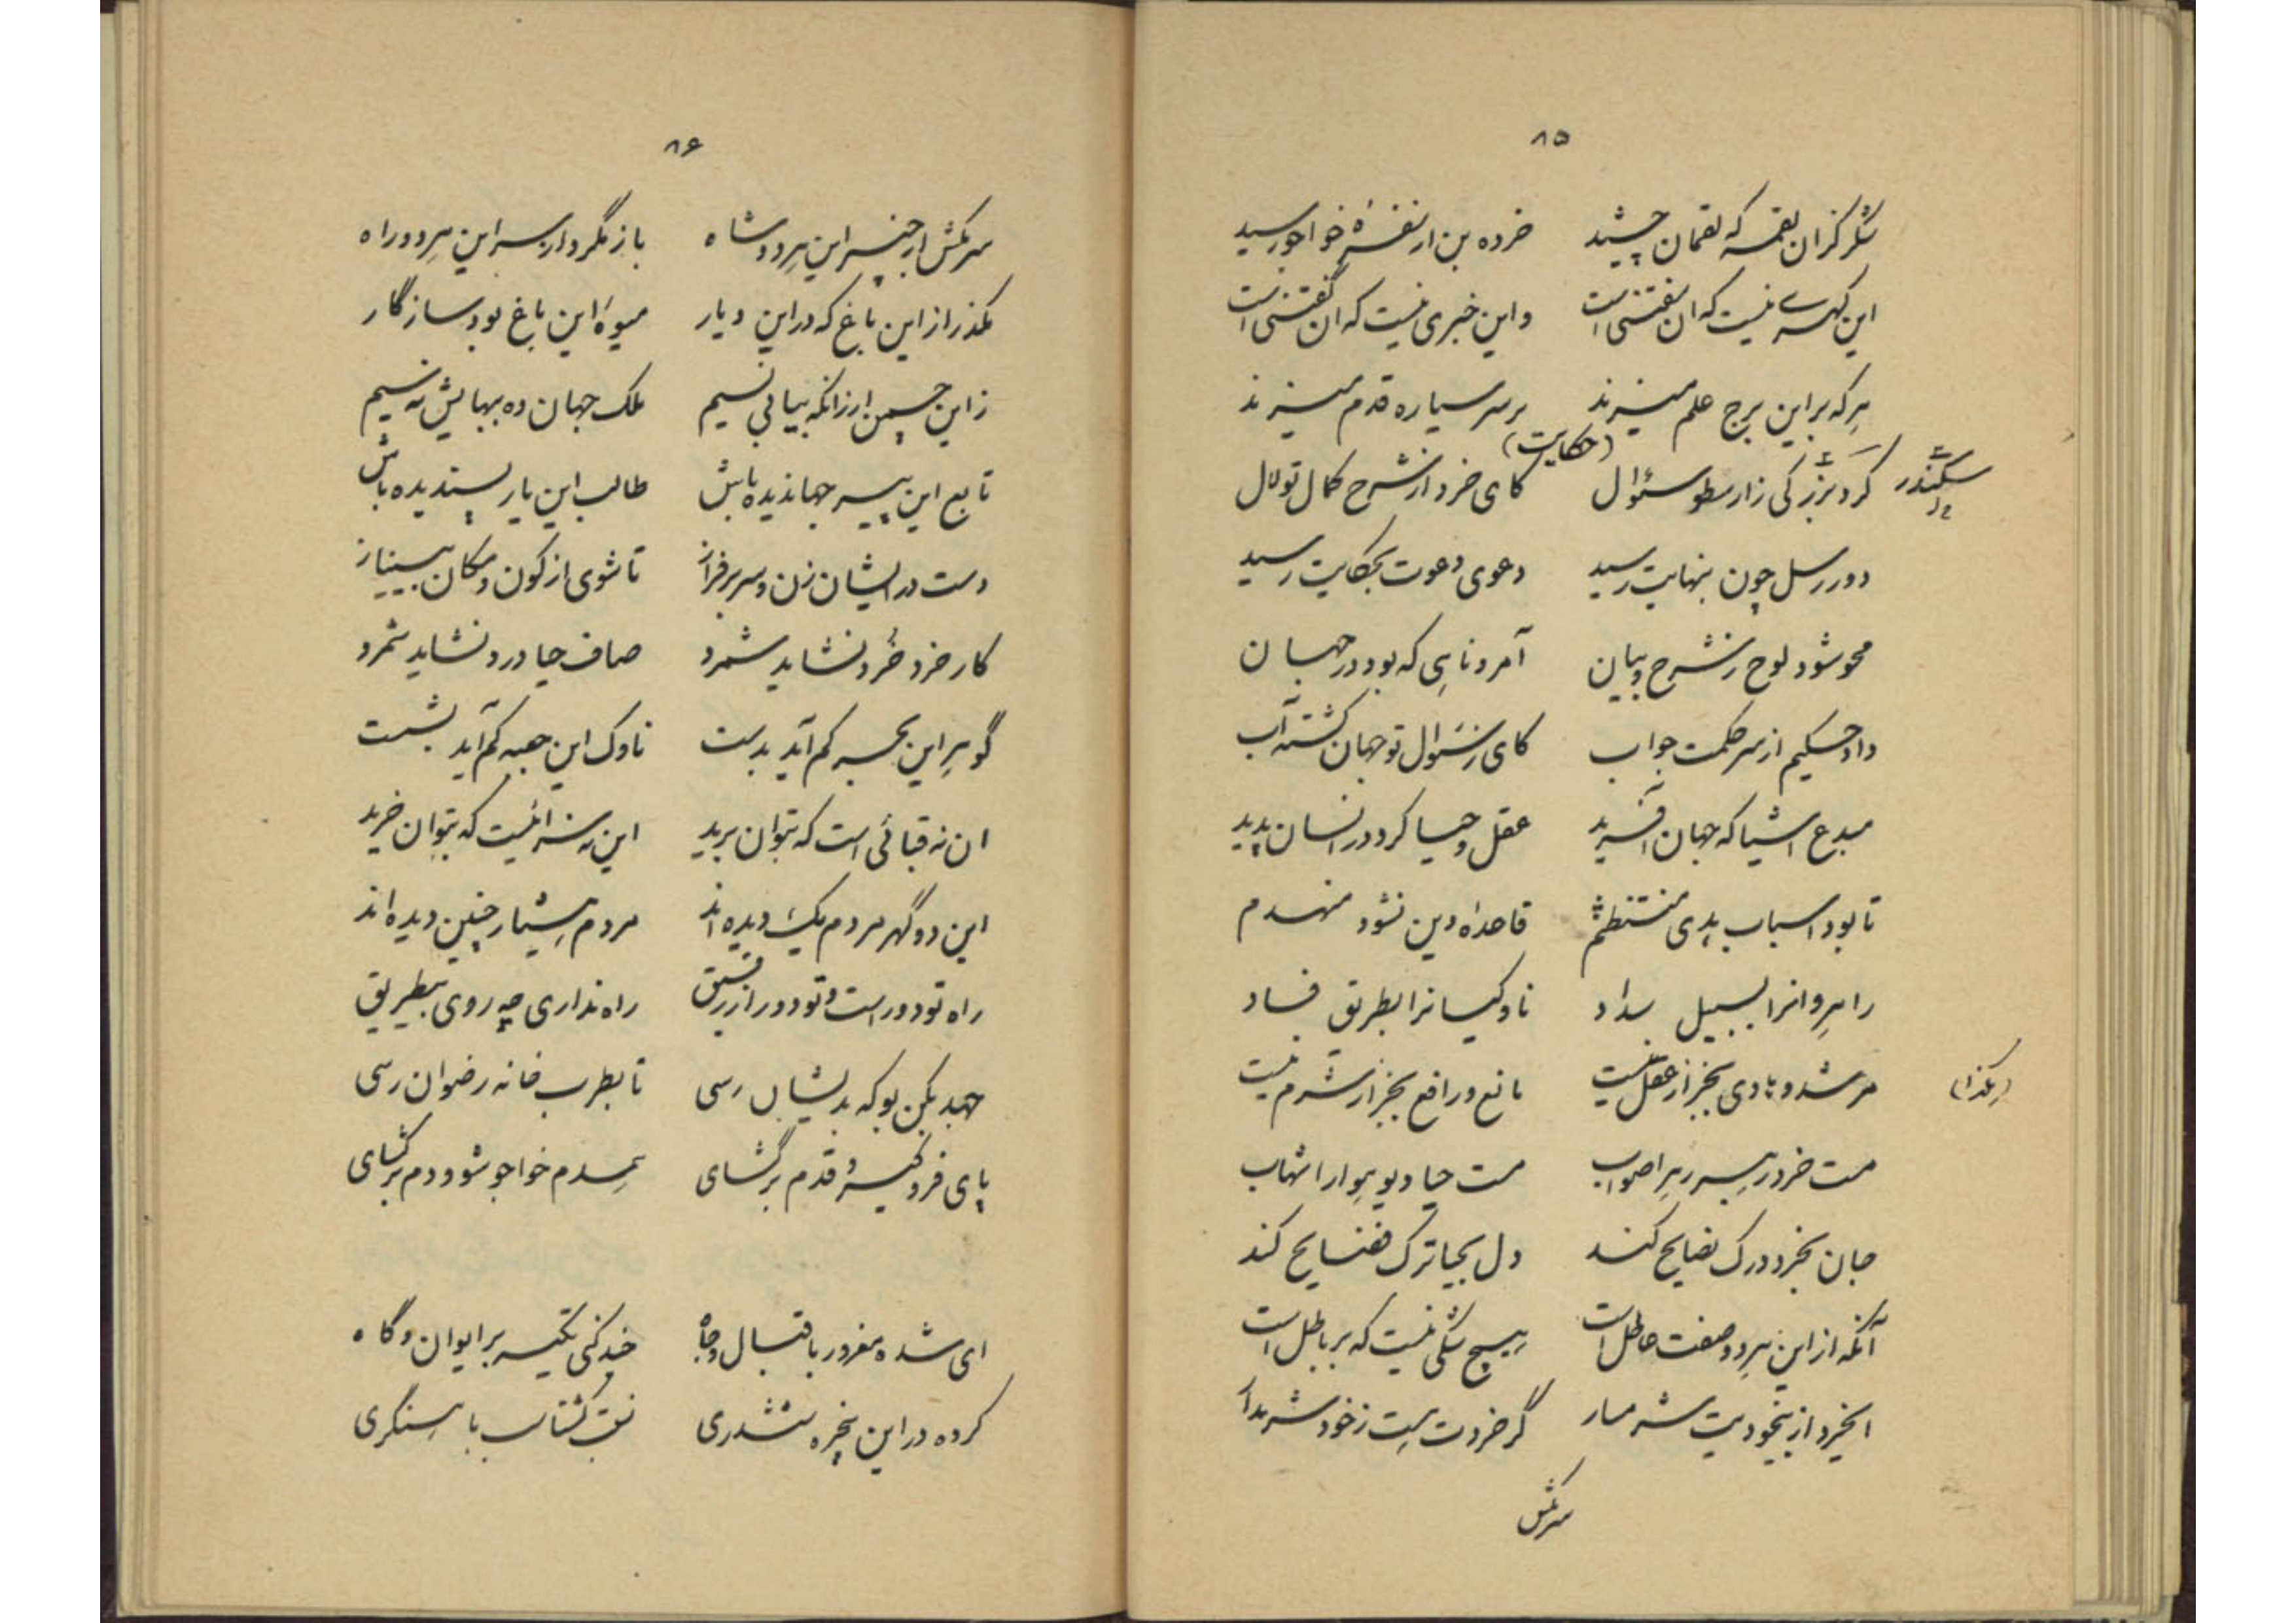 ۸۵
شکر کزان لقمه که لقمان چشید خرده بین از نغمهٔ خواجو رسید
این گهرے نیست که ان سفتنی است واین خبری نیست که ان گفتنی است
هر که بر این برج علم میزند بر سر سیاره قدم میزند
(حکایت)
سکندر کرد بزرگی ز ارسطو سئوال کای خرد از شرح کمال تو لال
دور رسل چون بنهایت رسید دعوی دعوت بحکایت رسید
محو شود لوح ز شرح و بیان آمر و ناهی که بود در جهان
داد حکیم از سر حکمت جواب کای ز سئوال تو جهان گشته آب
مبدع اشیا که جهان آفرید عقل و حیا کرد در انسان پدید
تا بود اسباب بدی منتظم قاعداه دین نشود منهدم
راهروانرا بسبیل سداد ناوکیانرا بطریق فساد
مرشد و هادی بجز از عقل نیست مانع و رافع بجز از شرم نیست (کذا)
مست خرد رهبر رهرا صواب مست حیا دیو هوا را شهاب
جان بخرد درک نصایح کند دل بحیا ترک فضایح کند
آنکه از این هر دو صفت عاطل است هیچ شکی نیست که بر باطل است
ایخرد از بیخودیت شرمسار گر خردت هست ز خود شرم دار
سرمکش
۸۶
سرمکش از چنبر این هر دو شاه باز مگرد از سر این هر دو راه
مگذر از این باغ که در این دیار میوهٔ این باغ بود سازگار
زاین چمن ار زانکه بیابی نسیم ملک جهان ده ببهایش نه سیم
تابع این پیر جهاندیده باش طالب این یار پسندیده باش
دست در ایشان زن و سر برفراز تا شوی از کون و مکان بینیاز
کار خرد خُرد نشاید شمرد صاف حیا درد نشاید شمرد
گوهر این بحر کم آید بدست ناوک این جعبه کم آید بشست
ان نه قبائی است که بتوان برید این نه سرائیست که بتوان خرید
این دو گهر مردم یک دیده اند مردم هشیار چنین دیده اند
راه تو دور است و تو دور از رفیق راه نداری چه روی بیطریق
جهد بکن بو که بدیشان رسی تا بطرب خانه رضوان رسی
پای فرو گیر و قدم برگشای همدم خواجو شو و دم برگشای
ای شده مغرور باقبال و جاه چند کنی تکیه بر ایوان و گاه
کرده در این پنجره ششدری نسبت باسنگری